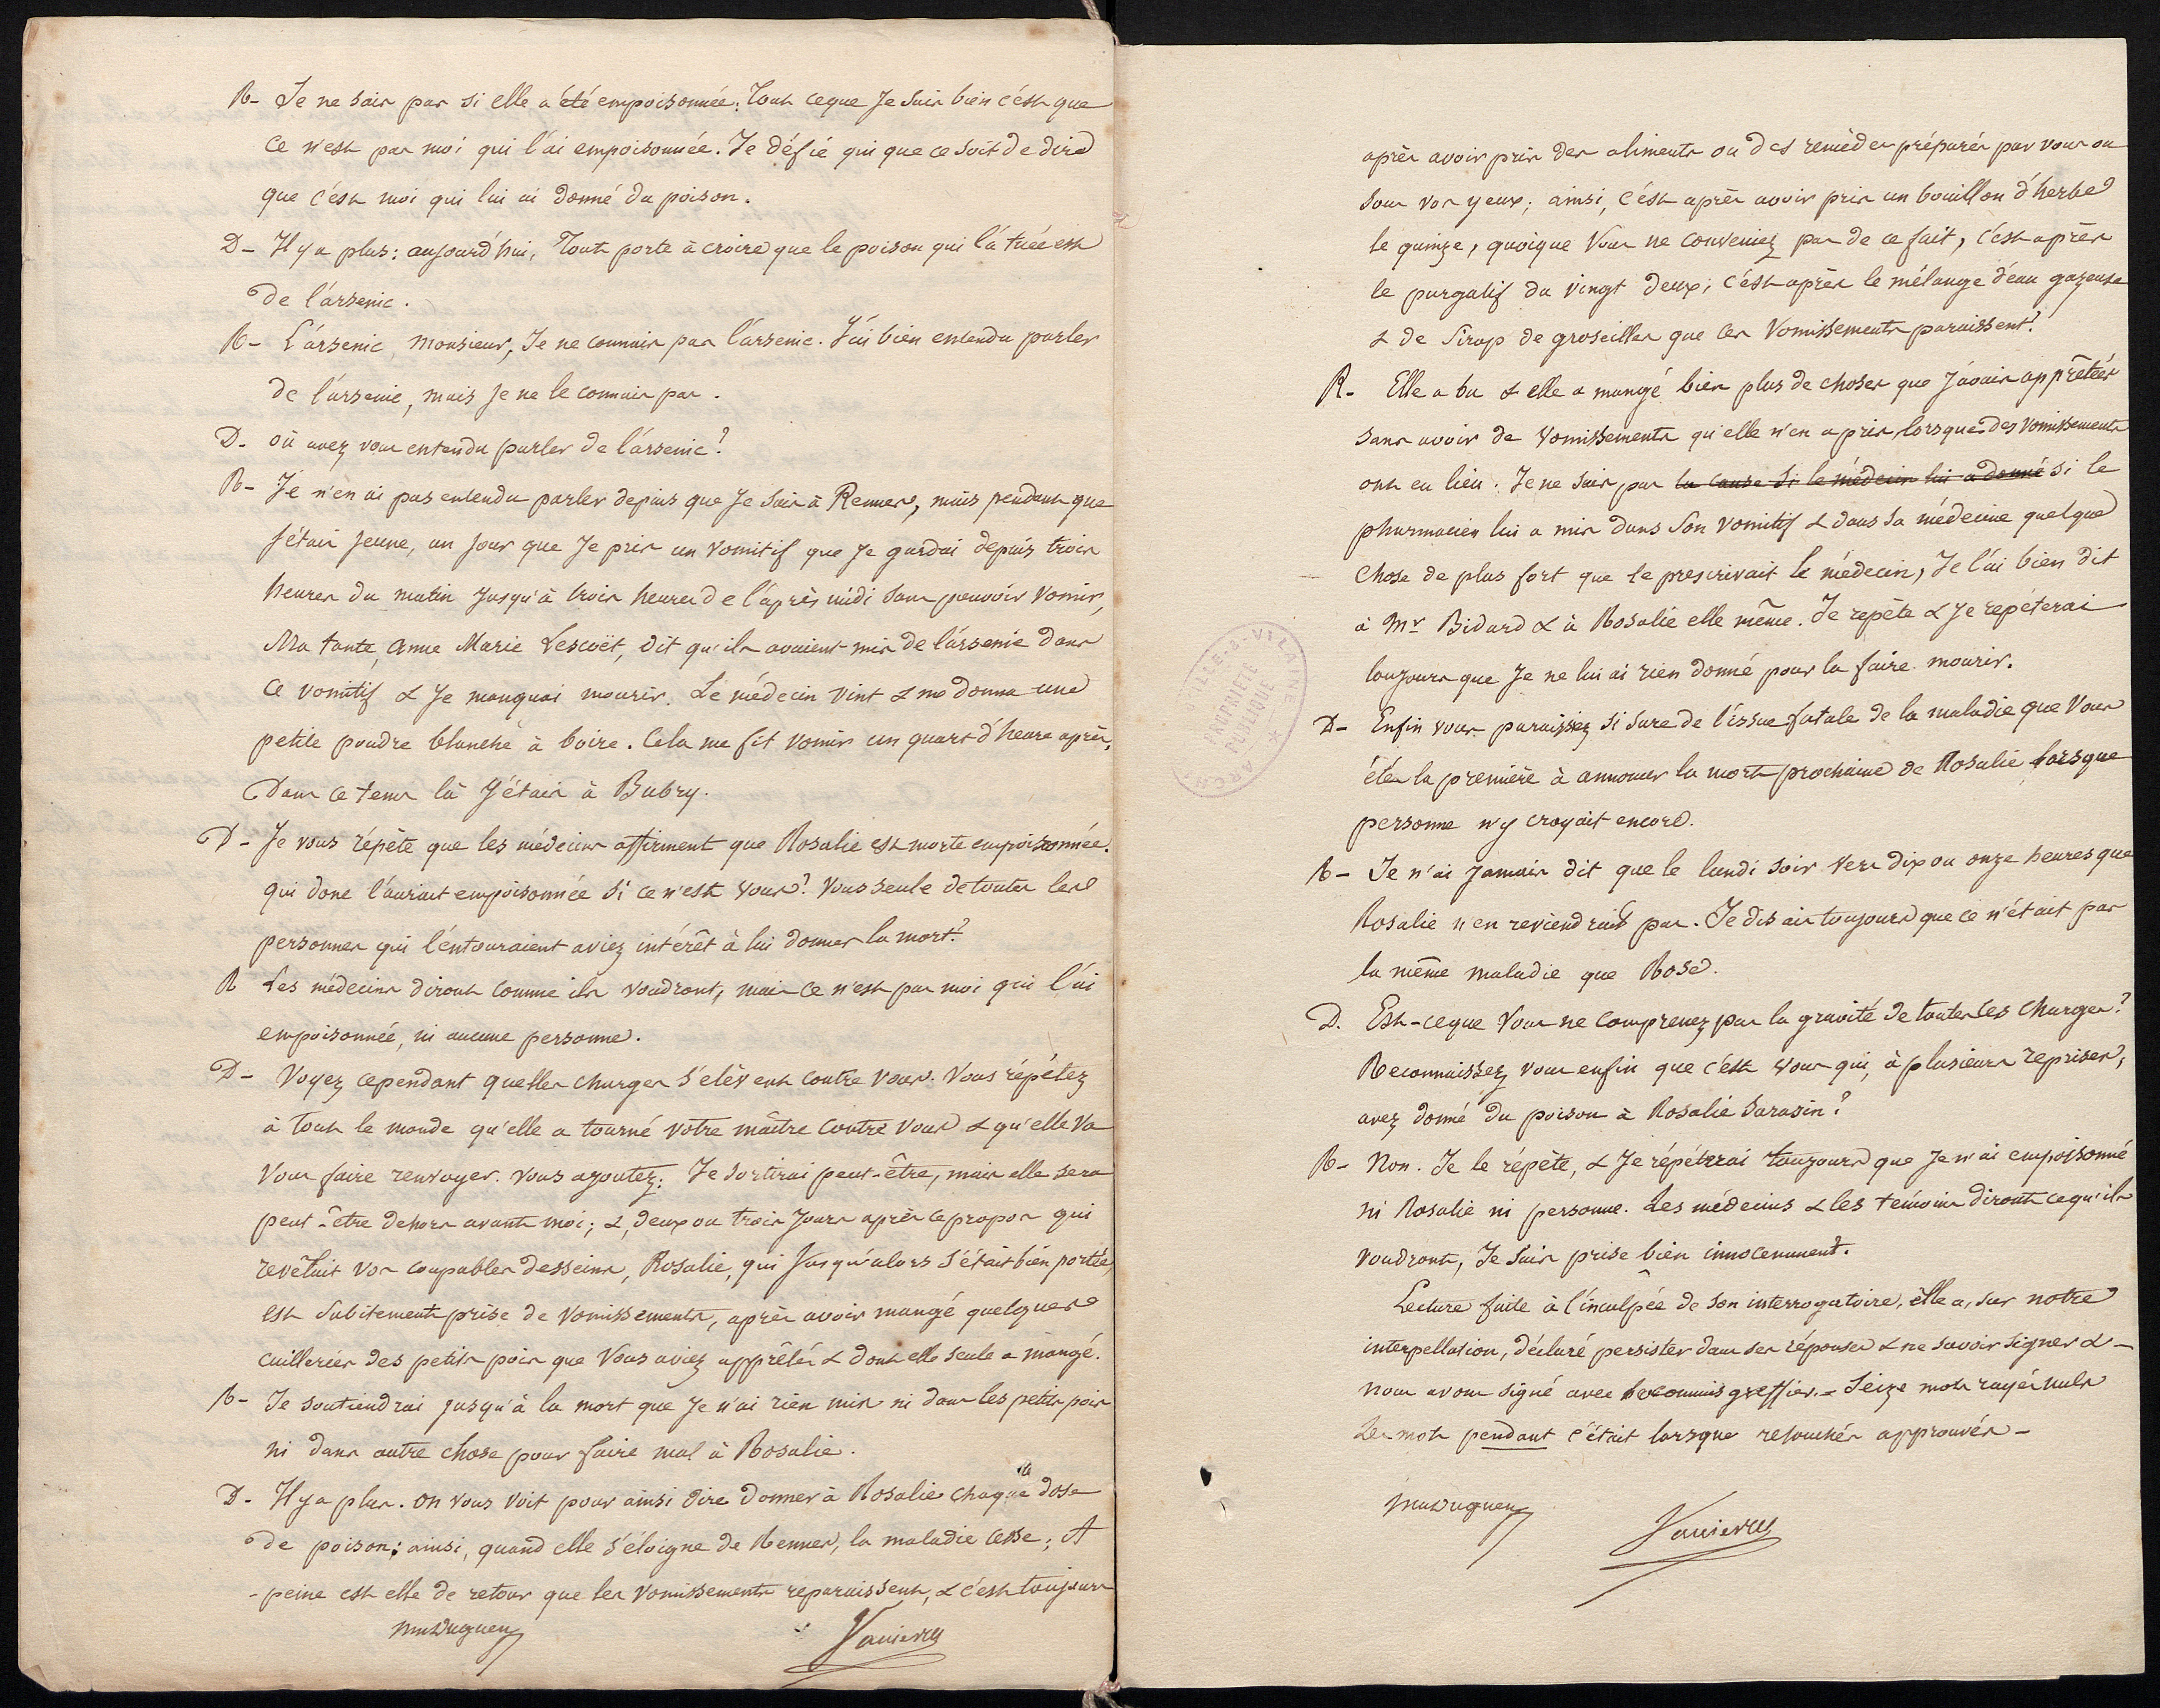 R- Je ne sais pas si elle a été empoisonnée. Tout ceque Je sais bien c'est que
ce n'est pas moi qui l'ai empoisonnée. Je défie qui que ce soit de dire
que c'est moi qui lui ai donné du poison.
D- Il y a plus: aujourd'hui, Tout porte à croire que le poison qui l'a tuée est
de l'arsenic.
R- L'arsenic, Monsieur, Je ne connais pas l'arsenic. J'ai bien entendu parler
de l'arsenic, mais Je ne le connais pas.
D- où avez vous entendu parler de l'arsenic?
R- Je n'en ai pas entendu parler depuis que Je suis à Rennes, mais pendant que
j'étais jeune, un jour que Je pris un vomitif que Je gardai depuis trois
heures du matin jusqu'à trois heures de l'après midi sans pouvoir vomir,
Ma tante, Anne Marie Lescoët, dit qu'ils avaient mis de l'arsenic dans
ce vomitif & Je manquai mourir. Le médecin vint & me donna une
petite poudre blanche à boire. Cela me fit vomir un quart d'heure après,
Dans ce tems là J'étais à Bubry.
D- Je vous répète que les médecins affirment que Rosalie est morte empoisonnée.
qui donc l'aurait empoisonnée si ce n'est vous? Vous seule de toutes les
personnes qui l'entouraient aviez intérêt à lui donner la mort?
R Les médecins diront comme ils voudront, mais ce n'est pas moi qui l'ai
empoisonnée, ni aucune personne.
D- Voyez cependant quelles charges s'élèvent contre vous. Vous répétez
à tout le monde qu'elle a tourné votre maître contre vous & qu'elle va
vous faire renvoyer. Vous ajoutez: Je sortirai peut-être, mais elle sera
peut-être dehors avant moi; &, deux ou trois jours après ce propos qui
revêlait vos coupables desseins, Rosalie, qui jusqu'alors s'était bien portée,
est subitement prise de vomissements, après avoir mangé quelques
cuillerées des petits pois que vous aviez apprêtés & dont elle seule a mangé.
R- Je soutiendrai jusqu'à la mort que Je n'ai rien mis ni dans les petits pois
ni dans autre chose pour faire mal à Rosalie.
D- Il y a plus. On vous voit pour ainsi dire donner à Rosalie chaque dose
de poison; ainsi, quand elle s'éloigne de Rennes, la maladie cesse; A
-peine est elle de retour que les vomissements reparaissent, & c'est toujours
Vannier
après avoir pris des aliments ou des remèdes préparés par vous ou
sous vos yeux; ainsi, c'est après avoir pris un bouillon d'herbes
le quinze, quoique vous ne conveniez pas de ce fait, c'est après
le purgatif du vingt deux; c'est après le mélange d'eau gazeuse
& de Sirop de groseilles que les vomissements paraissent?
R- Elle a bu & elle a mangé bien plus de choses que J'avais apprêtées
sans avoir de vomissements qu'elle n'en a pris lorsque des vomissements
ont eu lieu. Je ne sais pas la cause si le médecin lui a donné si le
pharmacien lui a mis dans son vomitif & dans sa médecine quelque
chose de plus fort que le prescrivait le médecin, Je l'ai bien dit
à Mr Bidard & à Rosalie elle même. Je repète & Je repéterai
toujours que Je ne lui ai rien donné pour la faire mourir.
D- Enfin vous paraissiez si sure de l'issue fatale de la maladie que Vous
êtes la première à annoncer la mort prochaine de Rosalie lorsque
personne n'y croyait encore.
R- Je n'ai jamais dit que le lundi soir vers dix ou onze heures que
Rosalie n'en reviendrait pas. Je disais toujours que ce n'était pas
la même maladie que Rose.
D. Est-ceque vous ne comprenez pas la gravité de toutes les charges?
Reconnaissez vous enfin que c'est vous qui, à plusieurs reprises,
avez donné du poison à Rosalie Sarasin?
R- Non. Je le répète, & Je répéterai toujours que Je n'ai empoisonné
ni Rosalie ni personne. Les médecins & les témoins diront cequ'ils
voudront, Je suis prise bien innocemment.
Lecture faite à l'inculpée de son interrogatoire, elle a, sur notre
interpellation, déclaré persister dans ses réponses & ne savoir signer &
nous avons signé avec le commis greffier.- Seize mots rayés nuls
Les mots pendant c'était lorsque retouchés approuvés -
Vannier
ILLE-&-VILAINE
PROPRIÉTÉ
PUBLIQUE
ARCH